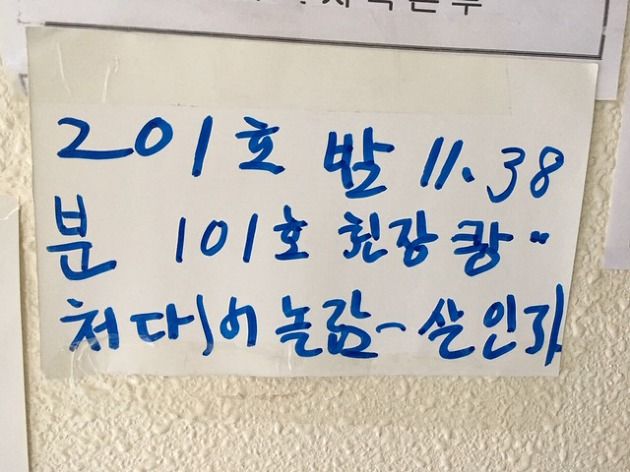 201호 밤 11.38
분 101호 천장 쾅"
처대어 놀람~ 살인자